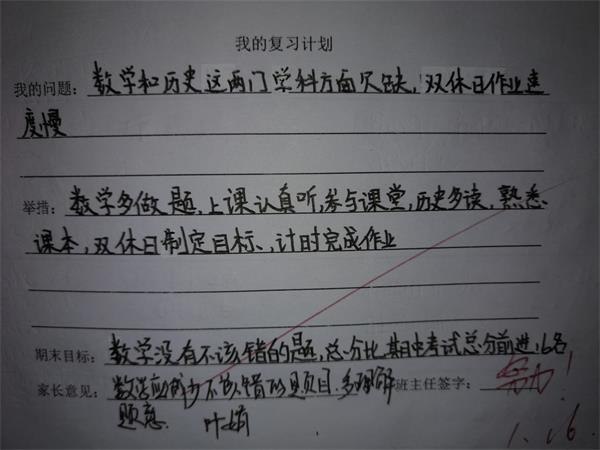 我的复习计划
我的问题：数学和历史这两门学科方面欠缺，双休日作业速
度慢
举措：数学多做题，上课认真听，参与课堂，历史多读，熟悉
课本，双休日制定目标，计时完成作业
期末目标：数学没有不该错的题，总分比期中考试总分前进16名
家长意见：数学应减少不该错的题目，多理解 班主任签字：努力！
题意. 叶娟
1.16